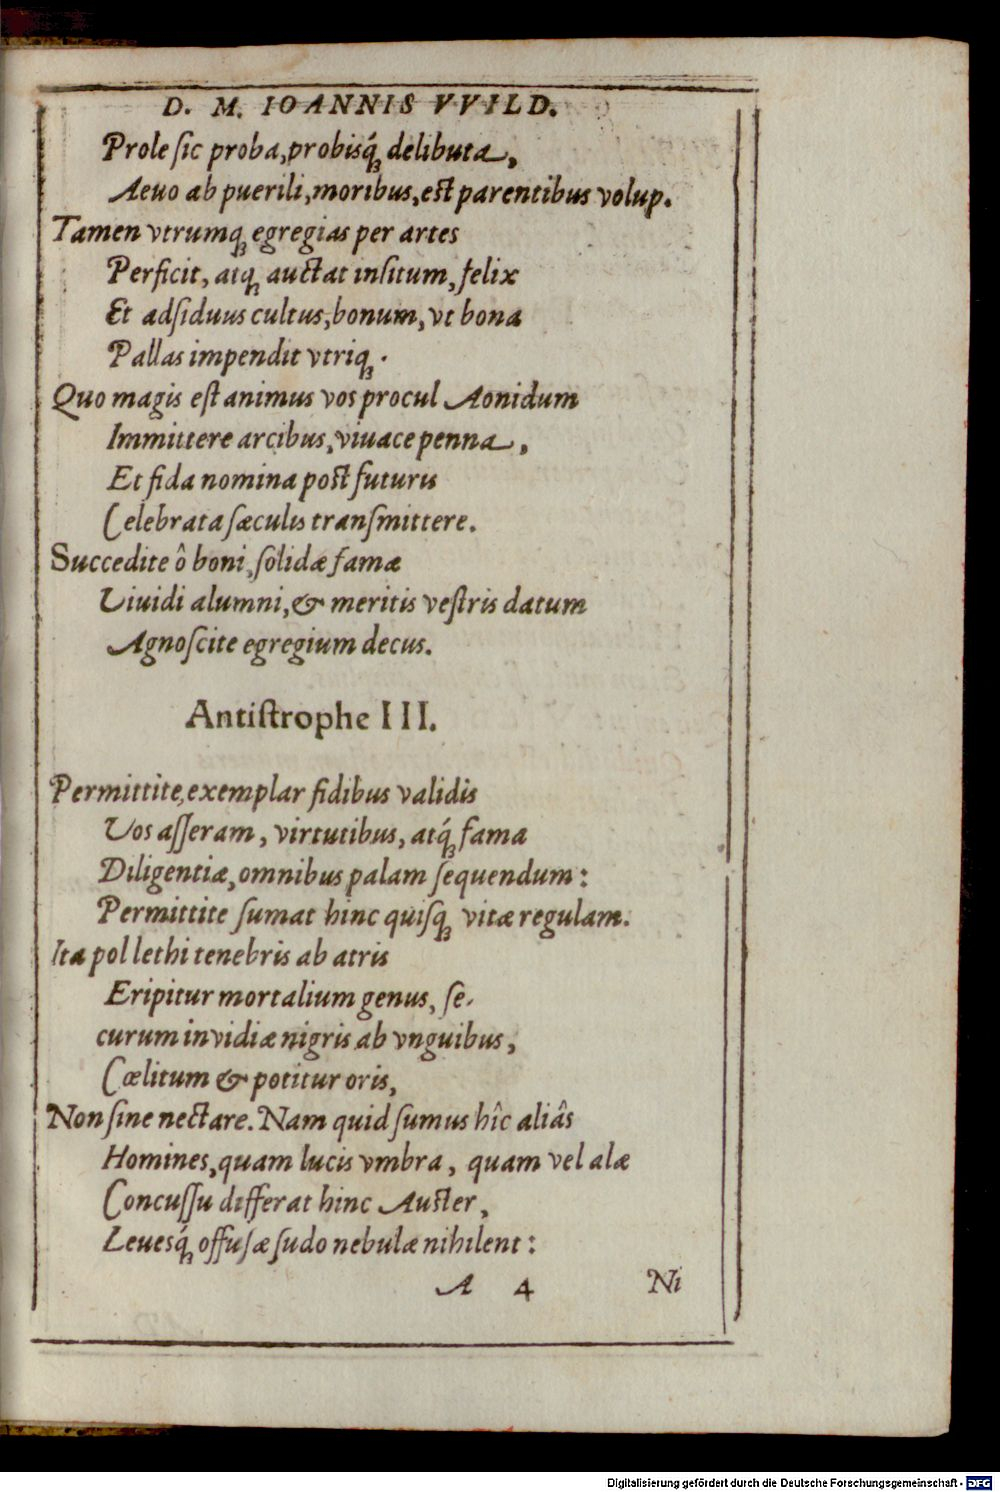 D. M. IOANNIS VVILD.
Prole sic proba, probisq́ꝫ delibuta,
Aeuo ab puerili, moribus, est parentibus volup.
Tamen vtrumqꝫ egregias per artes
Perficit, atqꝫ auctat insitum, felix
Et adsiduus cultus, bonum, vt bona
Pallas impendit vtriqꝫ.
Quo magis est animus vos procul Aonidum
Immittere arcibus, viuace penna,
Et fida nomina post futuris
Celebrata sæculis transmittere.
Succedite ô boni, solidæ famæ
Viuidi alumni, & meritis vestris datum
Agnoscite egregium decus.
Antistrophe III.
Permittite, exemplar fidibus validis
Vos asseram, virtutibus, atq́ꝫ fama
Diligentiæ, omnibus palam sequendum:
Permittite sumat hinc quisqꝫ vitæ regulam.
Ita pol lethi tenebris ab atris
Eripitur mortalium genus, se-
curum invidiæ nigris ab vnguibus,
Cœlitum & potitur oris,
Non sine nectare. Nam quid sumus hîc aliâs
Homines, quam lucis vmbra, quam vel alæ
Concussu differat hinc Auster,
Leuesq́ꝫ offusæ sudo nebulæ nihilent:
A 4 Ni
Digitalisierung gefördert durch die Deutsche Forschungsgemeinschaft - DFG